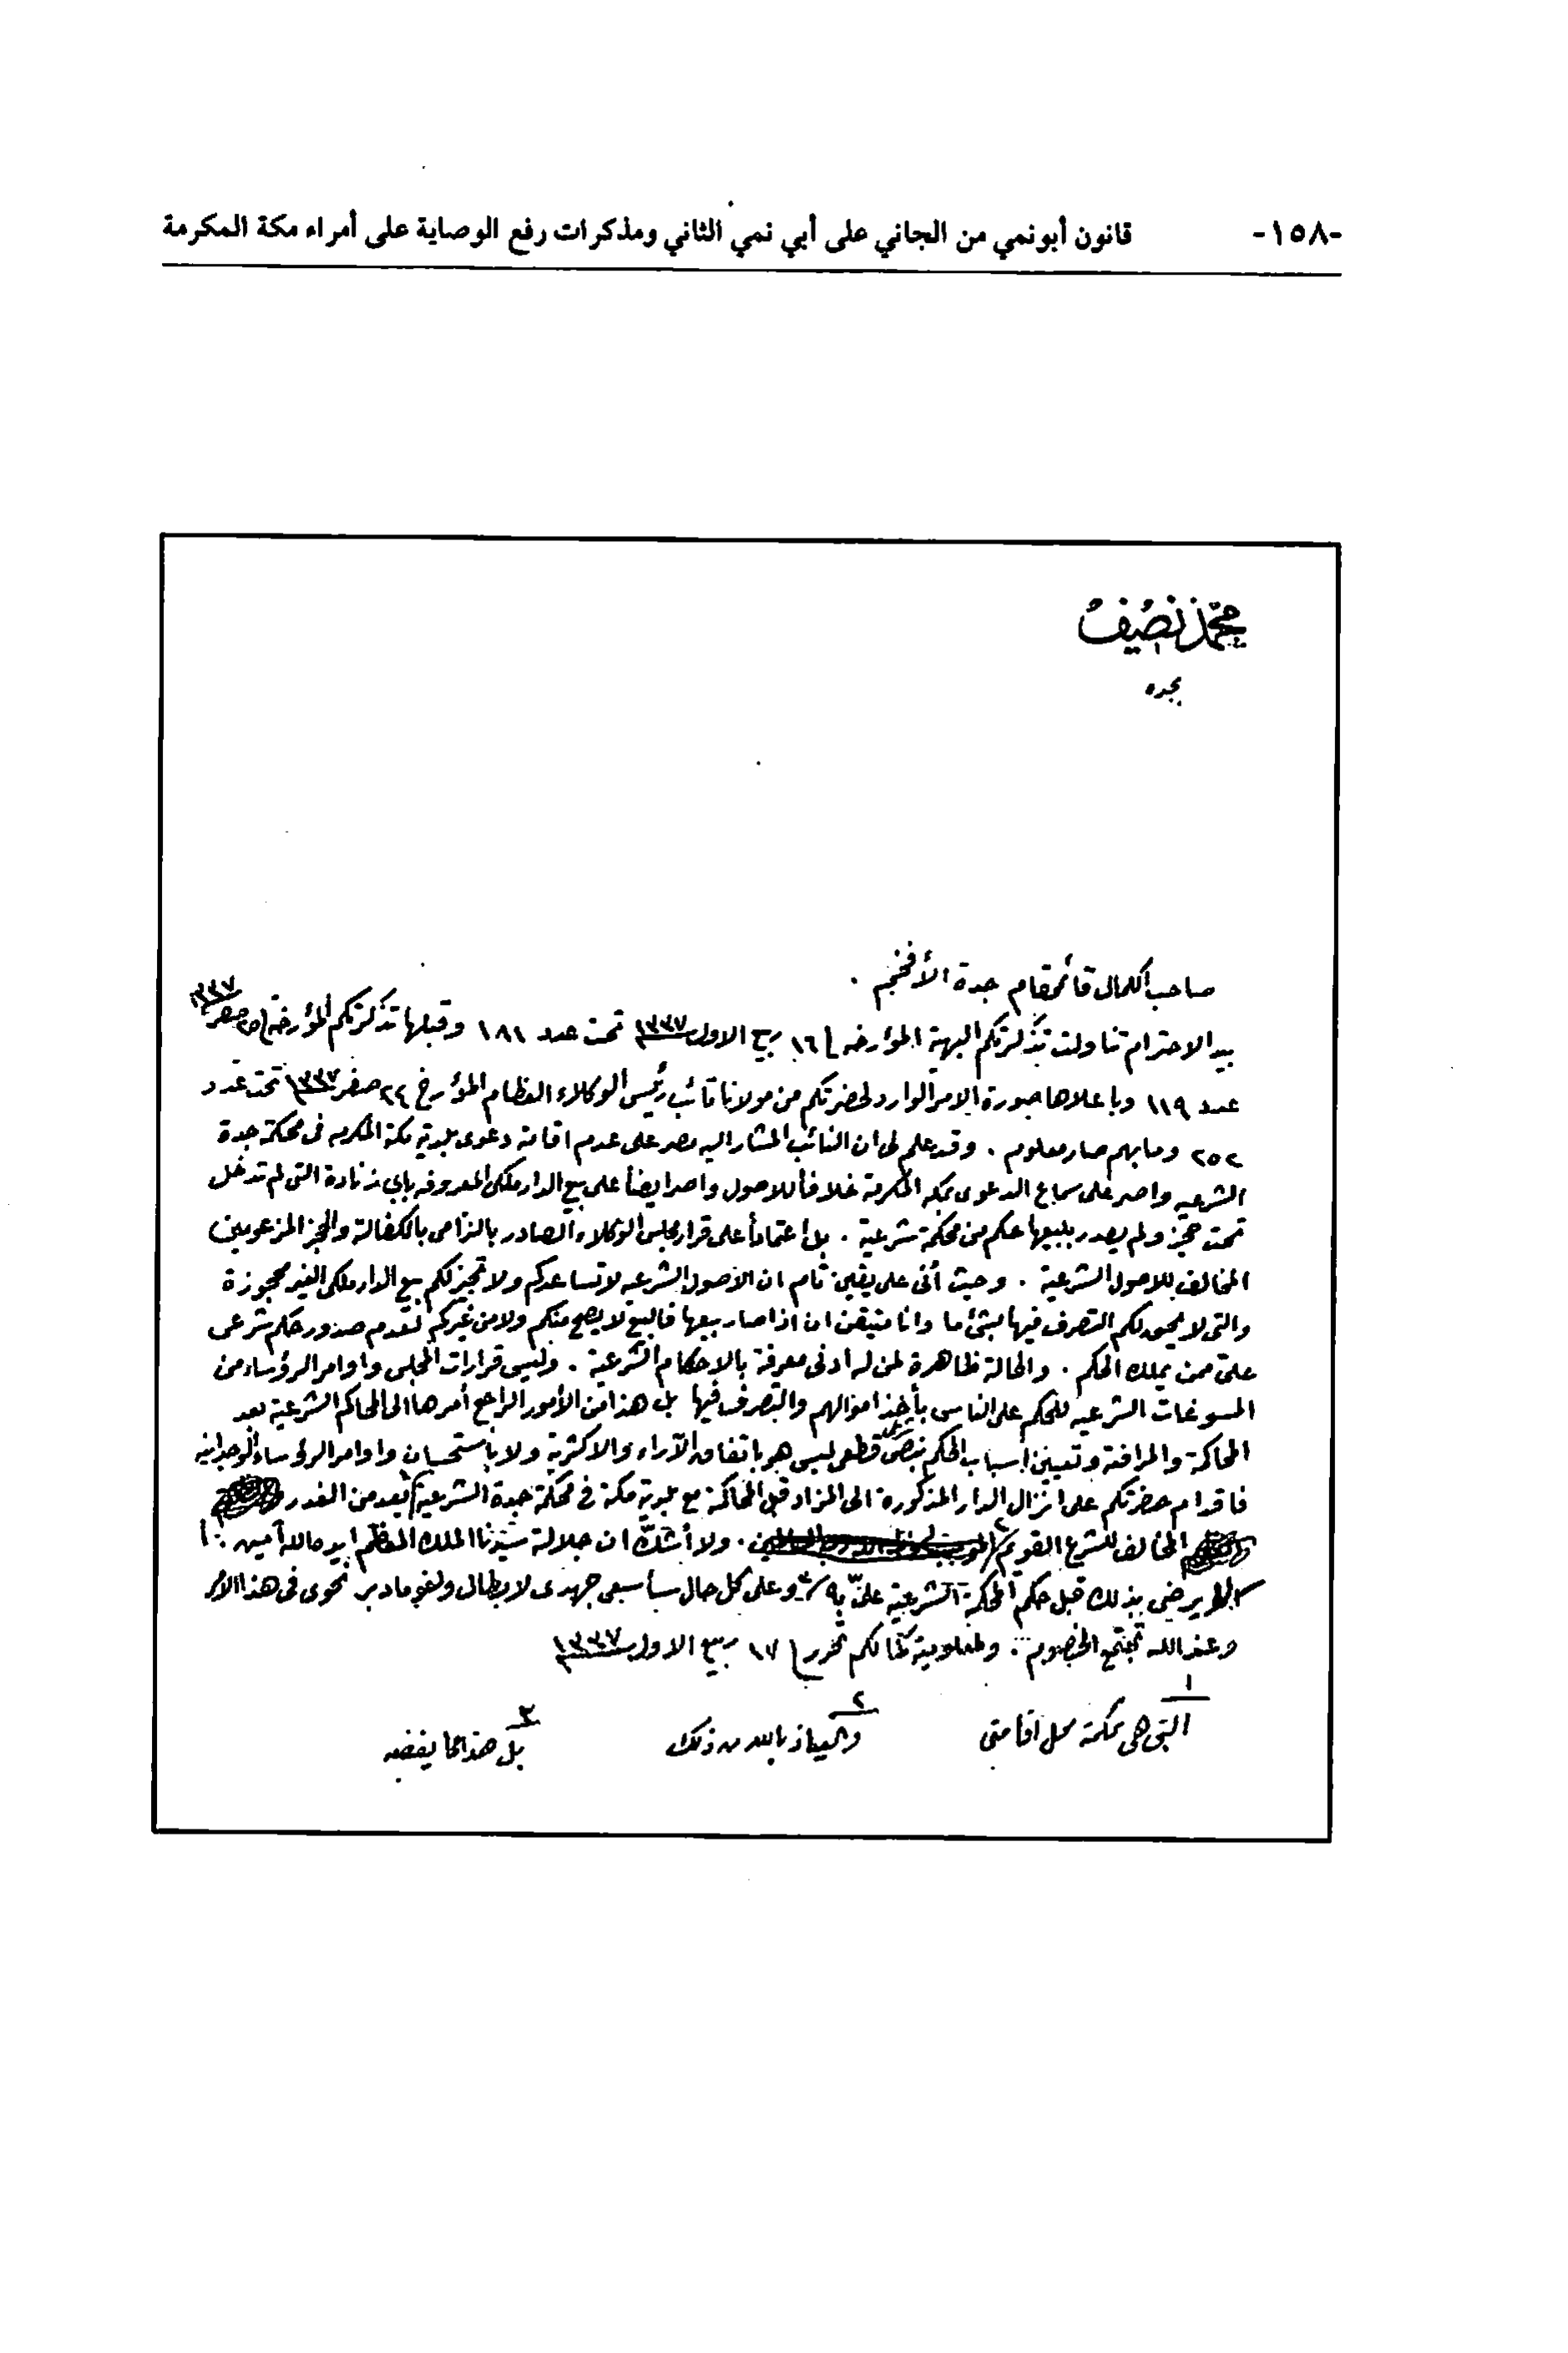 -١٥٨- قانون أبونمي من الجاني على أبي نمي الثاني ومذكرات رفع الوصاية على أمراء مكة المكرمة
محمد نصيف
بجده
صاحب الكمال قائمقام جدة الأفخم .
بيد الاحترام تناولت تذكرتكم البهية المؤرخه ١٦ ربيع الاول ١٣٣٧ تحت عدد ١٨١ وقبلها تذكرتكم المؤرخة ٢٥ صفر ٣٣٧
عدد ١١٩ وباعلاها صورة الامر الوارد لحضرتكم من مولانا نائب رئيس الوكلاء الفظام المؤرخ ٢٤ صفر ١٣٣٧ تحت عدد
٢٥٢ وما بهم صار معلوم . وقد علم لى ان النائب المشار اليه مصر على عدم اقامة دعوى بلدية مكة المكرمه فى محكمة جدة
الشرعيه واصر على سماع الدعوى بمكة المكرمة خلافاً للاصول واصر ايضاً على بيع الدار ملكى المعروفه بابي زنادة التى لم تدخل
تحت حجز ولم يصدر ببيعها حكم من محكمة شرعية . بل اعتماداً على قرار مجلس الوكلاء الصادر بالتزامى بالكفالة والحجز المزعومين
المخالف للاصول الشرعية . وحيث أنى على يقين تام ان الاصول الشرعيه لا تساعدكم ولا تجيز لكم بيع الدار ملكى الغير محجوزة
والتى لا يحق لكم التصرف فيها بشئ ما وانا متيقن ان اذا صار بيعها فالبيع لا يصح منكم ولا من غيركم لعدم صدور حكم شرعى
علىّ ممن يملك الحكم . والحالة ظاهرة لمن له ادنى معرفة بالاحكام الشرعية . وليس قرارات المجلس واوامر الرؤساء من
المسوغات الشرعيه للحكم على الناس بأخذ اموالهم والتصرف فيها بل هذا من الأمور الراجع أمرها الى المحاكم الشرعية بعد
المحاكمة والمرافعة وتعيين اسباب الحكم بنص قطعى ليس هو باتفاق الآراء والاكثرية ولا باستحسان واوامر الرؤساء الوجدانيه
فاقدام حضرتكم على انزال الدار المذكورة الى المزاد قبل المحاكمة مع بلدية مكة فى محكمة جدة الشرعية ١ يعد من الغدر
المخالف للشرع القويم ٢ . ولا أشك ان جلالة سيدنا الملك المعظم ايده الله آمين
لا يرضى بذلك قبل حكم المحكمة الشرعية علىّ به ٣ وعلى كل حال سأسعى جهدى لابطال ولغو ما دبر نحوى فى هذا الامر
وعند الله تجتمع الخصوم . ولمعلومية كمالكم تحرر ١٧ ربيع الاول ١٣٣٧
١ ٢ ٣
التى هى بمحكمة محل اقامتى والعياذ بالله من ذلك بل هذا مما يغضبه